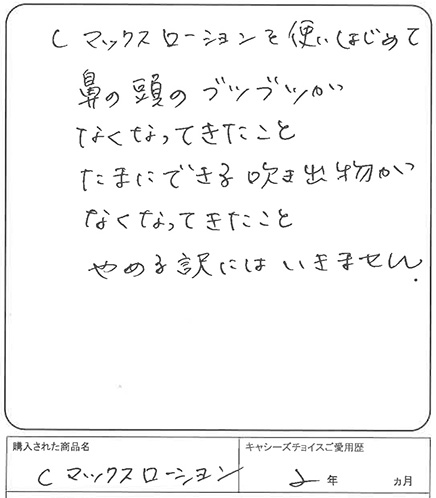 C マックスローションを使いはじめて
鼻の頭のブツブツが
なくなってきたこと
たまにできる吹き出物が
なくなってきたこと
やめる訳にはいきません.
購入された商品名
C マックスローション
キャシーズチョイスご愛用歴
2 年 ヵ月